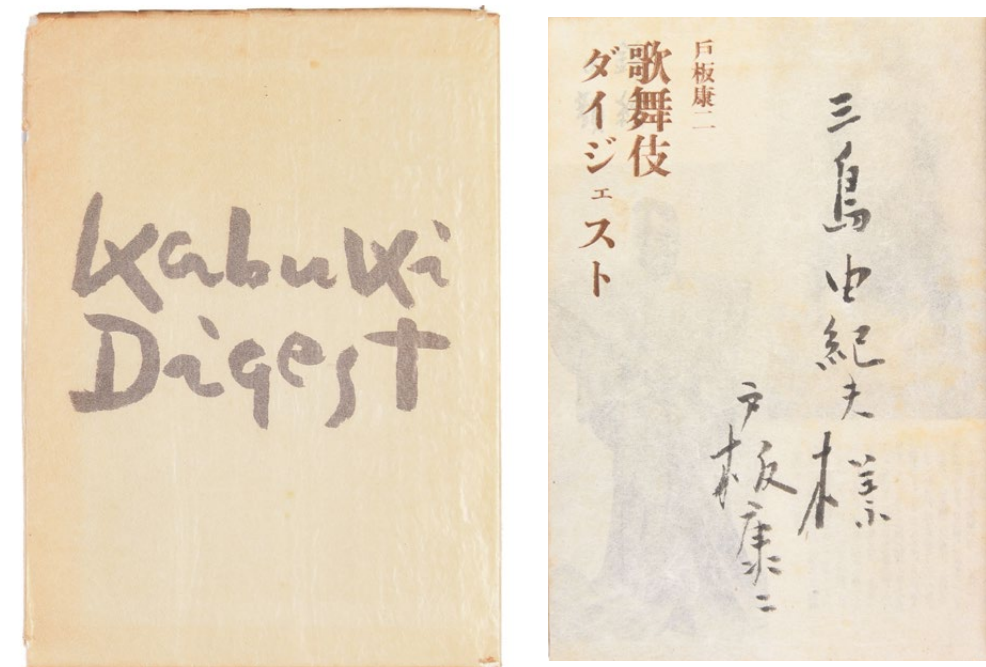 Kabuki
Digest
戸板康二
歌舞伎
ダイジェスト
三島由紀夫様
戸板康二